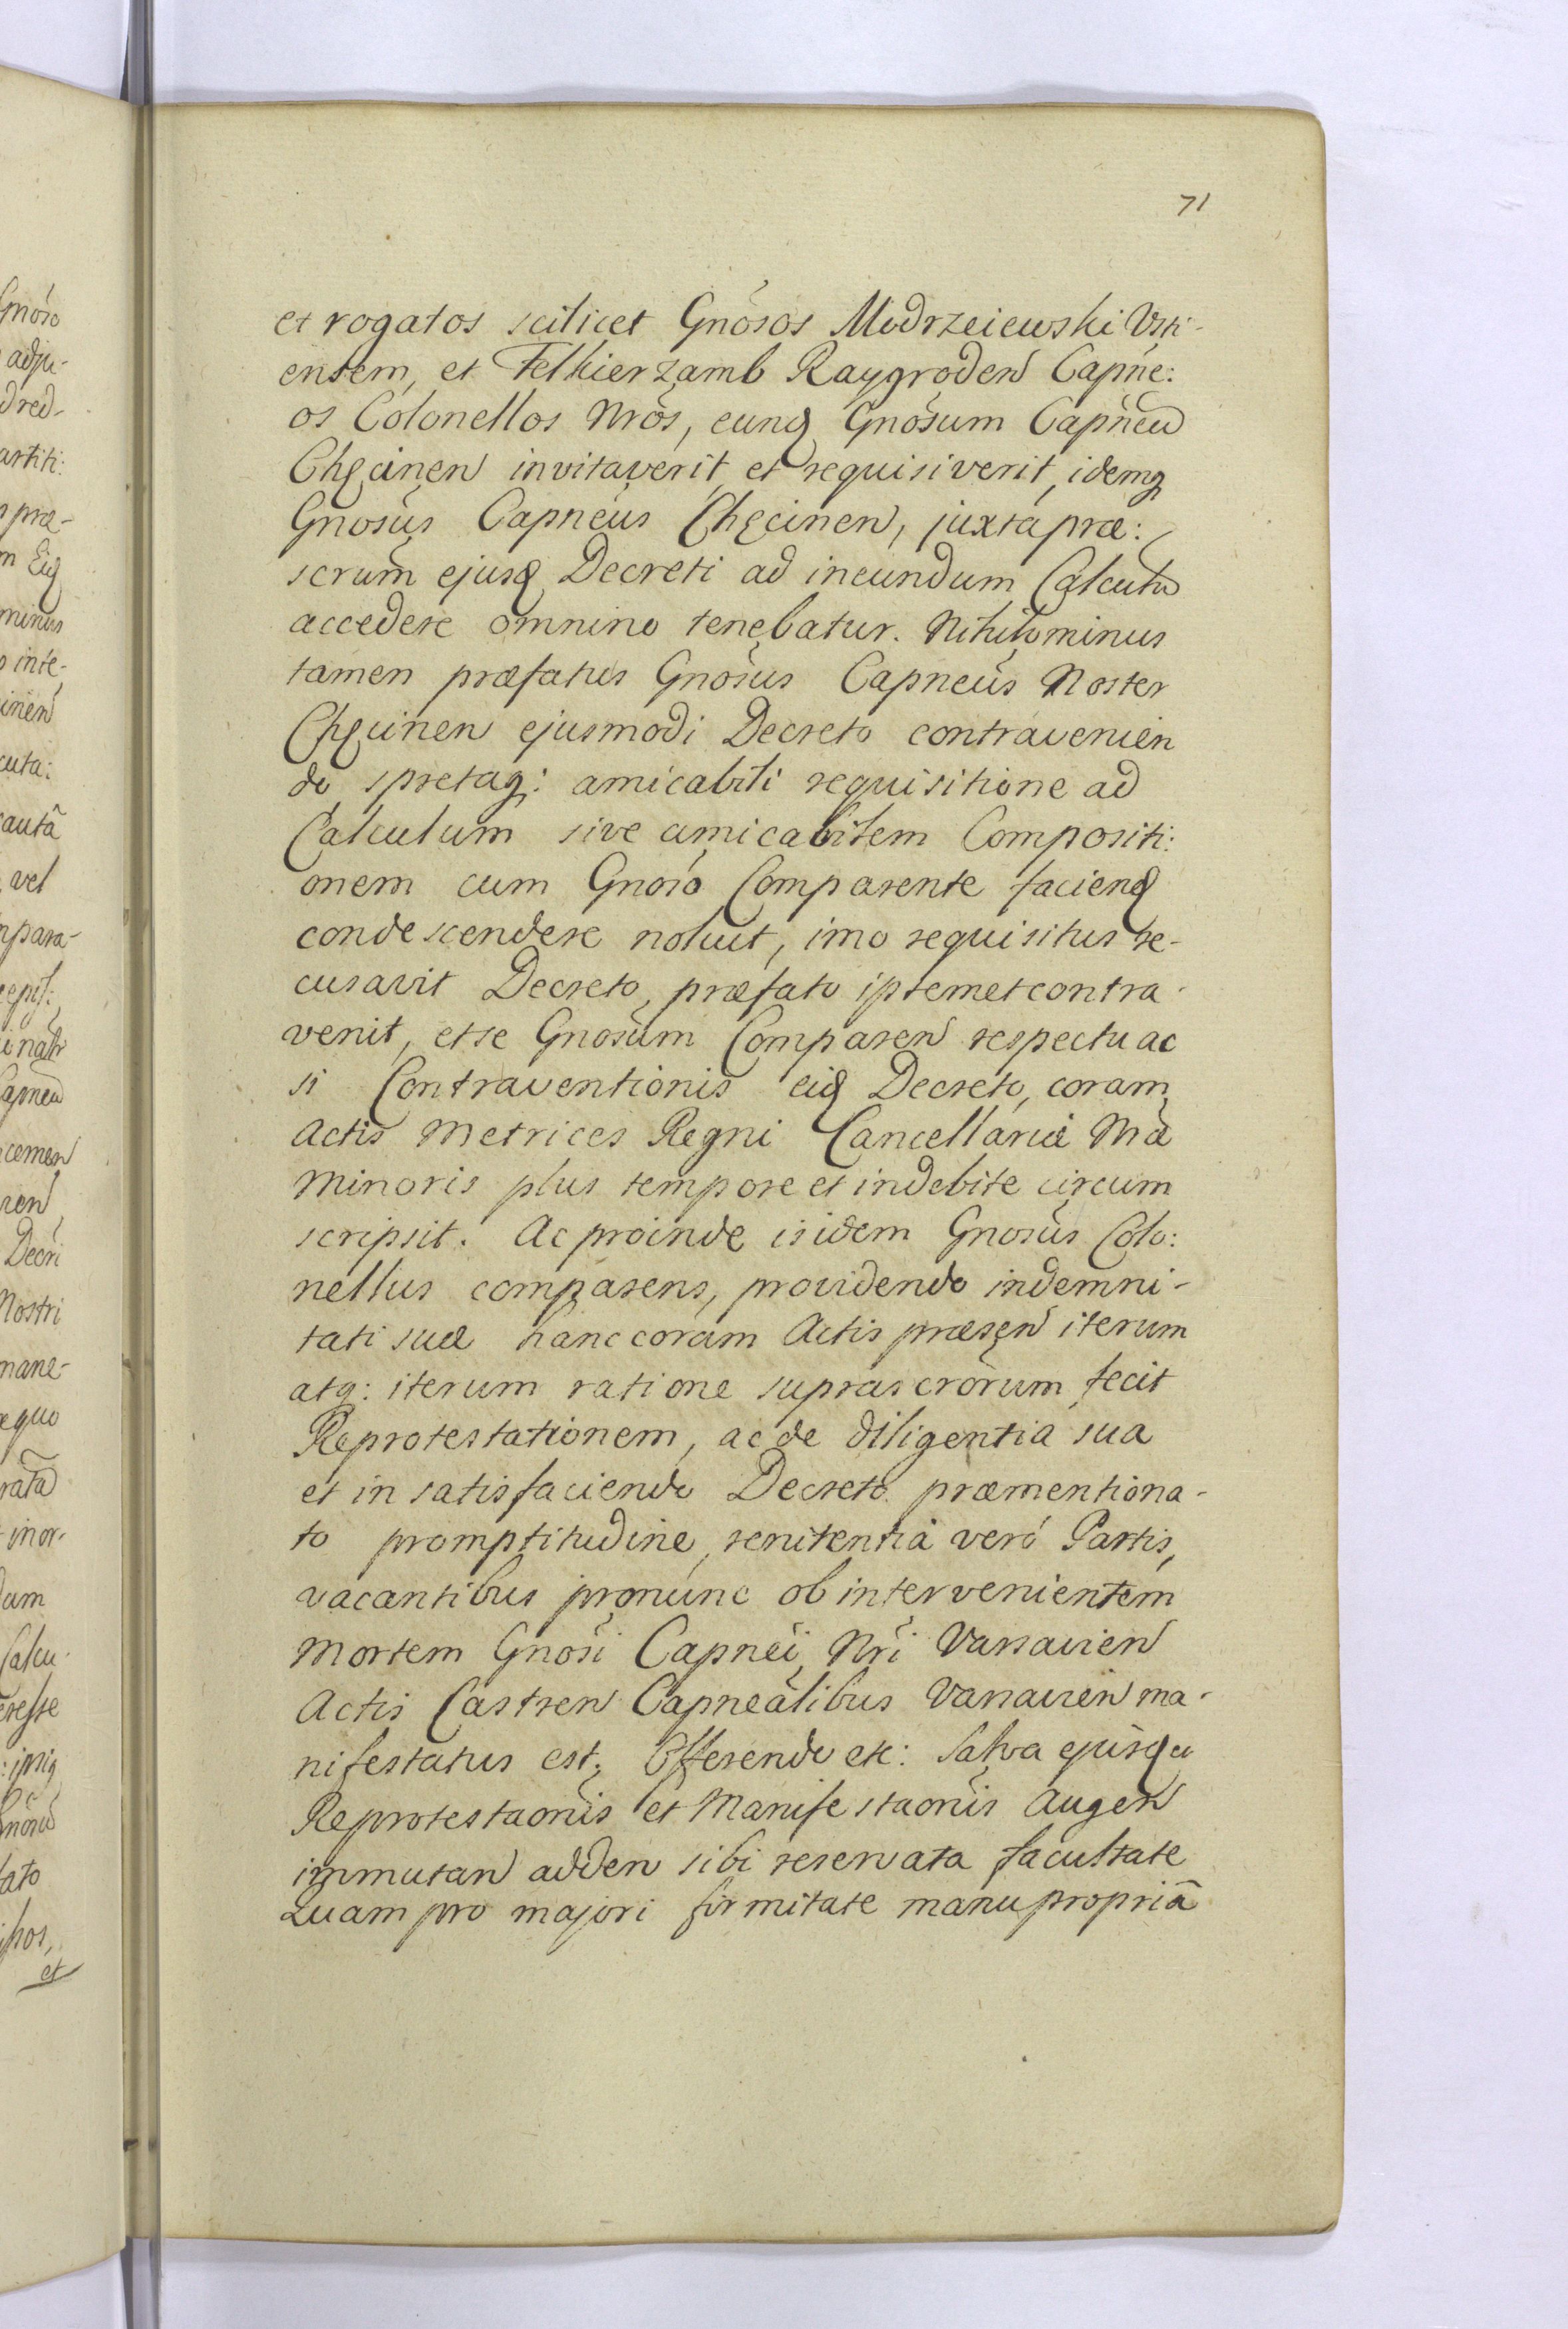 71
et rogatos scilicet Gnõsos Modrzeiewski Usti-
ensem, et Felkierzamb Raygroden Capñe:
os Colonellos Nrõs, eunq Gnõsum Capñeu
Chęcinen invitaverit et requisiverit, idemq
Gnosũs Capnẽus Chęcinen, juxta præ:
scrum̃ ejusq Decreti ad ineundum Calculu
accedere omnino tenebatur. Nihilominus
tamen præfatus Gnõsus Capneũs Noster
Chęcinen ejusmodi Decreto contravenien
do spretaq: amicabili requisitione ad
Calculum sive amicabilem Compositi:
onem cum Gnosõ Comparente faciend
condescendere noluit, imo requisitus re-
cusavit Decreto, præfato ipsemet contra-
venit, et se Gnosũm Comparen respectu ac
si Contraventionis eid Decreto, coram
Actis Metrices Regni Cancellariæ Mã
Minoris plus tempore et indebite circum
scripsit. Ac proinde isidem Gnosũs Colo:
nellus comparens, providendo indemni-
tati suæ hanc coram Actis præsen iterum
atq: iterum ratione suprascrõrum fecit
Reprotestationem, ac de diligentia sua
et in satisfaciendo Decreto præmentiona-
to promptitudine, renitentiâ verò Partis,
vacantibus pronunc ob intervenientem
Mortem Gnosĩ Capneĩ, Nrĩ Varsavien
Actis Castren Capneãlibus Varsavien ma-
nifestatus est. Offerendo etc: Salva ejusqu
Reprotestaonĩs et Manifestaonĩs Augen
immutan adden sibi reservata facultate
Quam pro majori firmitate manu propriâ
Gnõso
adju-
artiti:
præ-
minus
inte-
vel
mpara-
Decri
Nostri
mane-
equo
inor-
Calcu-
et